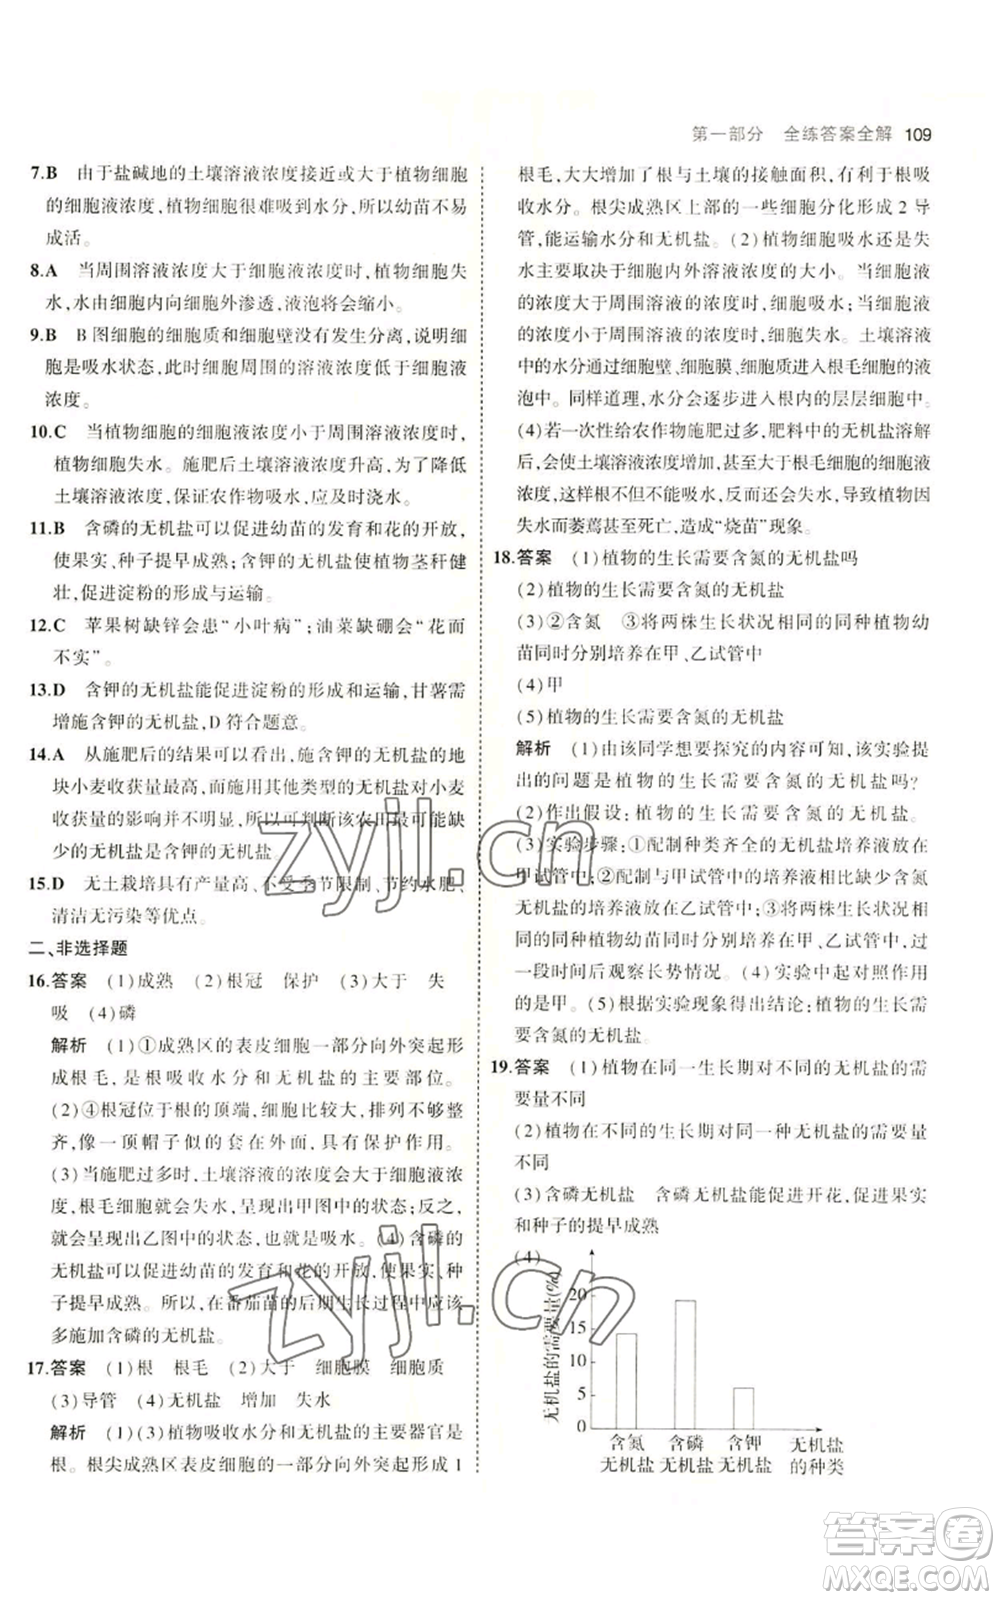 第一部分 全练答案全解 109
7.B 由于盐碱地的土壤溶液浓度接近或大于植物细胞
的细胞液浓度,植物细胞很难吸到水分,所以幼苗不易
成活。
8.A 当周围溶液浓度大于细胞液浓度时,植物细胞失
水,水由细胞内向细胞外渗透,液泡将会缩小。
9.B B图细胞的细胞质和细胞壁没有发生分离,说明细
胞是吸水状态,此时细胞周围的溶液浓度低于细胞液
浓度。
10.C 当植物细胞的细胞液浓度小于周围溶液浓度时,
植物细胞失水。施肥后土壤溶液浓度升高,为了降低
土壤溶液浓度,保证农作物吸水,应及时浇水。
11.B 含磷的无机盐可以促进幼苗的发育和花的开放,
使果实、种子提早成熟;含钾的无机盐使植物茎秆健
壮,促进淀粉的形成与运输。
12.C 苹果树缺锌会患“小叶病”;油菜缺硼会“花而
不实”。
13.D 含钾的无机盐能促进淀粉的形成和运输,甘薯需
增施含钾的无机盐,D符合题意。
14.A 从施肥后的结果可以看出,施含钾的无机盐的地
块小麦收获量最高,而其他类型的无机盐对小麦
收获量的影响并不明显,所以可判断该农田最可能缺
少的无机盐是含钾的无机盐。
15.D 无土栽培具有产量高、不受季节限制、节约水肥、
清洁无污染等优点。
二、非选择题
16.答案 (1)成熟 (2)根冠 保护 (3)大于 失
吸 (4)磷
解析 (1)①成熟区的表皮细胞一部分向外突起形
成根毛,是根吸收水分和无机盐的主要部位。
(2)④根冠位于根的顶端,细胞比较大,排列不够整
齐,像一顶帽子似的套在外面,具有保护作用。
(3)当施肥过多时,土壤溶液的浓度会大于细胞液浓
度,根毛细胞就会失水,呈现出甲图中的状态;反之,
就会呈现出乙图中的状态,也就是吸水。(4)含磷的
无机盐可以促进幼苗的发育和花的开放,使果实、种
子提早成熟。所以,在番茄苗的后期生长过程中应该
多施加含磷的无机盐。
17.答案 (1)根 根毛 (2)大于 细胞膜 细胞质
(3)导管 (4)无机盐 增加 失水
解析 (1)(3)植物吸收水分和无机盐的主要器官是
根。根尖成熟区表皮细胞的一部分向外突起形成1
根毛,大大增加了根与土壤的接触面积,有利于根吸
收水分。根尖成熟区上部的一些细胞分化形成2导
管,能运输水分和无机盐。(2)植物细胞吸水还是失
水主要取决于细胞内外溶液浓度的大小。当细胞液
的浓度大于周围溶液的浓度时,细胞吸水;当细胞液
的浓度小于周围溶液的浓度时,细胞失水。土壤中
的水分通过细胞壁、细胞膜、细胞质进入根毛细胞的液
泡中。同样道理,水分会逐步进入根内的层层细胞中。
(4)若一次性给农作物施肥过多,肥料中的无机盐溶解
后,会使土壤溶液浓度增加,甚至大于根毛细胞的细胞液
浓度,这样根毛细胞不但不能吸水,反而还会失水,导致植物因
失水而萎蔫甚至死亡,造成“烧苗”现象。
18.答案 (1)植物的生长需要含氮的无机盐吗
(2)植物的生长需要含氮的无机盐
(3)②含氮 ③将两株生长状况相同的同种植物幼
苗同时分别培养在甲、乙试管中
(4)甲
(5)植物的生长需要含氮的无机盐
解析 (1)由该同学想要探究的内容可知,该实验提
出的问题是植物的生长需要含氮的无机盐吗?
(2)作出假设:植物的生长需要含氮的无机盐。
(3)实验步骤:①配制种类齐全的无机盐培养液放在
甲试管中;②配制与甲试管中的培养液相比只缺少含氮
无机盐的培养液放在乙试管中;③将两株生长状况
相同的同种植物幼苗同时分别培养在甲、乙试管中,过
一段时间后观察长势情况。(4)实验现象:长势较好
的是甲。(5)根据实验现象得出结论:植物的生长需
要含氮的无机盐。
19.答案 (1)植物在同一生长期对不同的无机盐的需
要量不同
(2)植物在不同的生长期对同一种无机盐的需要量
不同
(3)含磷无机盐 含磷无机盐能促进开花,促进果实
和种子的提早成熟
(4)
无机盐的需要量(%)
20
15
10
5
0
含氮 含磷 含钾 无机盐
无机盐 无机盐 无机盐 的种类
zyjl.cn
zyjl.cn
答案卷
MXQE.COM